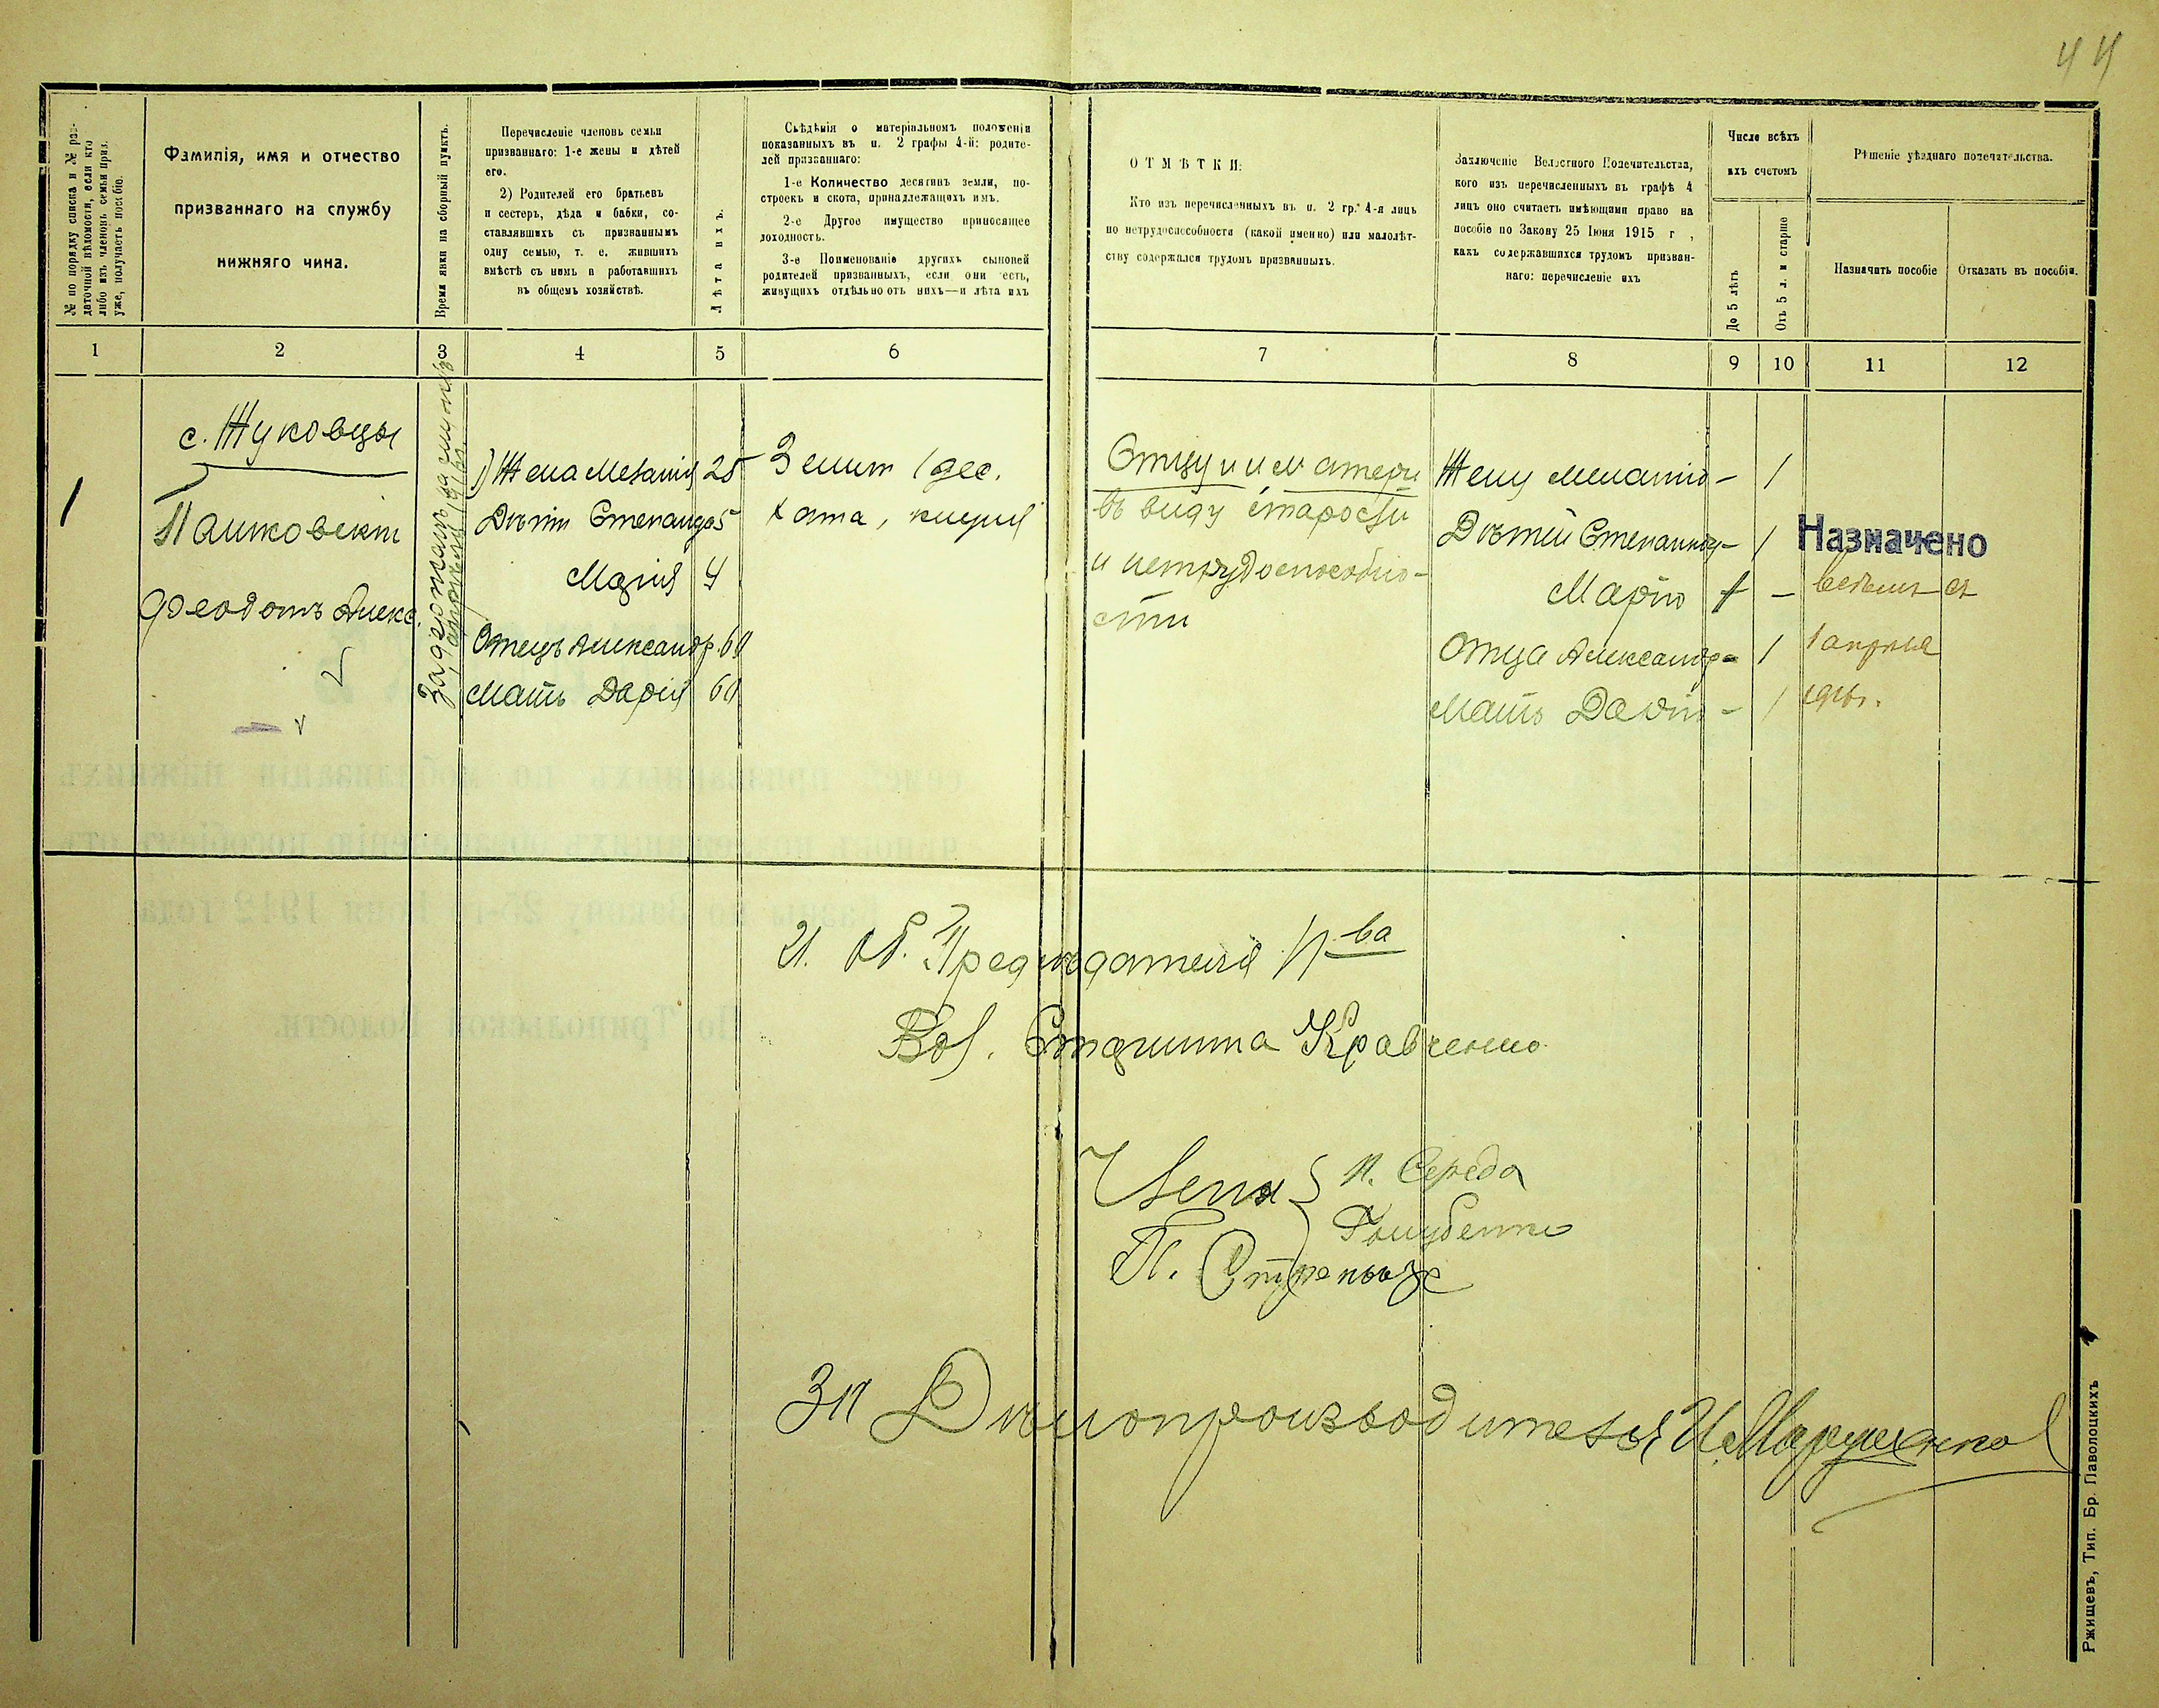 44
№ по порядку списка и № раз-
даточной вѣдомости, если кто
либо изъ членовъ семьи приз.
уже, получаетъ пособіе.
Фамилія, имя и отчество
призваннаго на службу
нижняго чина.
Время явки на сборный пунктъ.
Перечисленіе членовъ семьи
призваннаго: 1-е жены и дѣтей
его.
2) Родителей его братьевъ
и сестеръ, дѣда и бабки, со-
ставлявшихъ съ призваннымъ
одну семью, т. е. жившихъ
вмѣстѣ съ нимъ и работавшихъ
въ общемъ хозяйствѣ.
Лѣта ихъ.
Свѣдѣнія о матеріальномъ положеніи
показанныхъ въ п. 2 графы 4-й: родите-
лей призваннаго:
1-е Количество десятинъ земли, по-
строекъ и скота, принадлежащихъ имъ.
2-е Другое имущество приносящее
доходность.
3-е Поименованіе другихъ сыновей
родителей призванныхъ, если они есть,
живущихъ отдѣльно отъ нихъ—и лѣта ихъ
ОТМѢТКИ:
Кто изъ перечисленныхъ въ п. 2 гр. 4-я лицъ
по нетрудоспособности (какой именно) или малолѣт-
ству содержался трудомъ призванныхъ.
Заключеніе Волостного Попечительства,
кого изъ перечисленныхъ въ графѣ 4
лицъ оно считаетъ имѣющими право на
пособіе по Закону 25 Іюня 1915 г,
какъ содержавшихся трудомъ призван-
наго: перечисленіе ихъ
Число всѣхъ
ихъ счетомъ
До 5 лѣтъ
Отъ 5 л. и старше
Рѣшеніе уѣзднаго попечительства.
Назначить пособіе
Отказать въ пособіи.
1 2 3 4 5 6 7 8 9 10 11 12
с. Жуковцы
1
Феодотъ Алекс.
1) Жена Меланія 25
Дѣти Степанида 5
Марія 4
Отецъ Александр. 60
Мать Дарія 60
Земли 1 дес.
хата,
Отцу и матери
въ виду старости
и нетрудоспособно-
сти
Жену Меланію - 1
Дѣтей Степаниду - 1
Марію 1 -
Отца Александра - 1
Мать Дарію - 1
Назначено
1 апрѣля
1916 г.
И. об. Предсѣдателя П-ва
Вол. Старшина Кравченко
Члены
П. Середа
Голубенко
За Дѣлопроизводителя
Ржищевъ, Тип. Бр. Паволоцкихъ